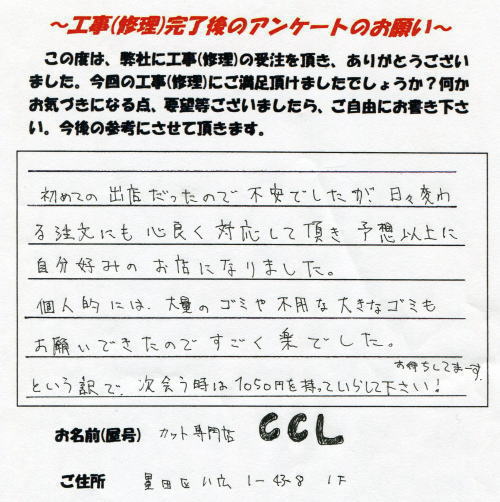 ～工事(修理)完了後のアンケートのお願い～
この度は、弊社に工事(修理)の受注を頂き、ありがとうござい
ました。今回の工事(修理)にご満足頂けましたでしょうか？何か
お気づきになる点、要望等ございましたら、ご自由にお書き下さ
い。今後の参考にさせて頂きます。
初めての出店だったので不安でしたが、日々変わ
る注文にも心良く対応して頂き予想以上に
自分好みのお店になりました。
個人的には、大量のゴミや不用な大きなゴミも
お願いできたのですごく楽でした。
お待ちしてまーす。
という訳で、次会う時は1050円を持っていらして下さい！
お名前(屋号) カット専門店 CCL
ご住所 墨田区八広 1-43-8 1F